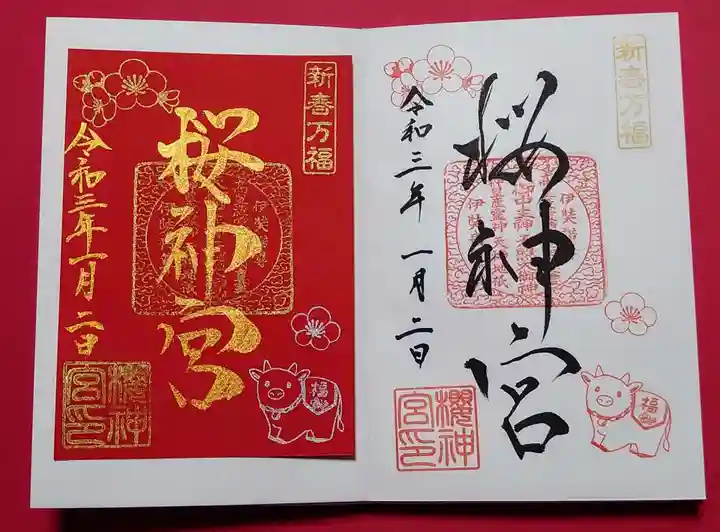 新春万福
櫻神宮
令和三年一月二日
櫻神宮印
福
新春万福
桜神宮
令和三年一月二日
櫻神宮印
福